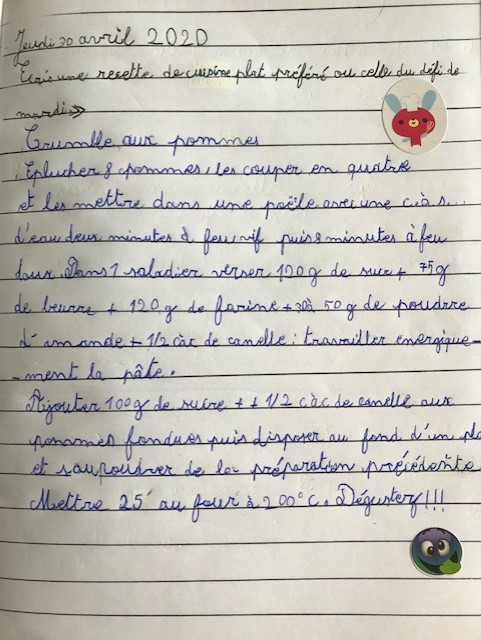 Jeudi 30 avril 2020
Écris une recette de cuisine plat préféré ou celle du défi de
mardi
Crumble aux pommes
Eplucher 8 pommes, les couper en quatre
et les mettre dans une poêle avec une c.à.s...
d'eau deux minutes à feu vif puis 8 minutes à feu
doux. Dans 1 saladier verser 120 g de sucr + 75 g
de beurre + 120 g de farine + 30à 50 g de poudrre
d'amande + 1/2 càc de canelle : travailler énergique-
-ment la pâte.
Ajouter 100g de sucre + + 1/2 càc de canelle aux
pommes fondues puis disposer au fond d'un pla
et saupoudrer de la préparation précédente
Mettre 25' au four à 200°c. Déguster!!!